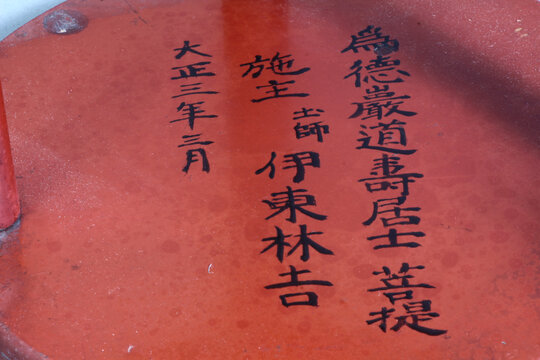 為德巖道壽居士菩提
施主 土師 伊東林吉
大正三年三月